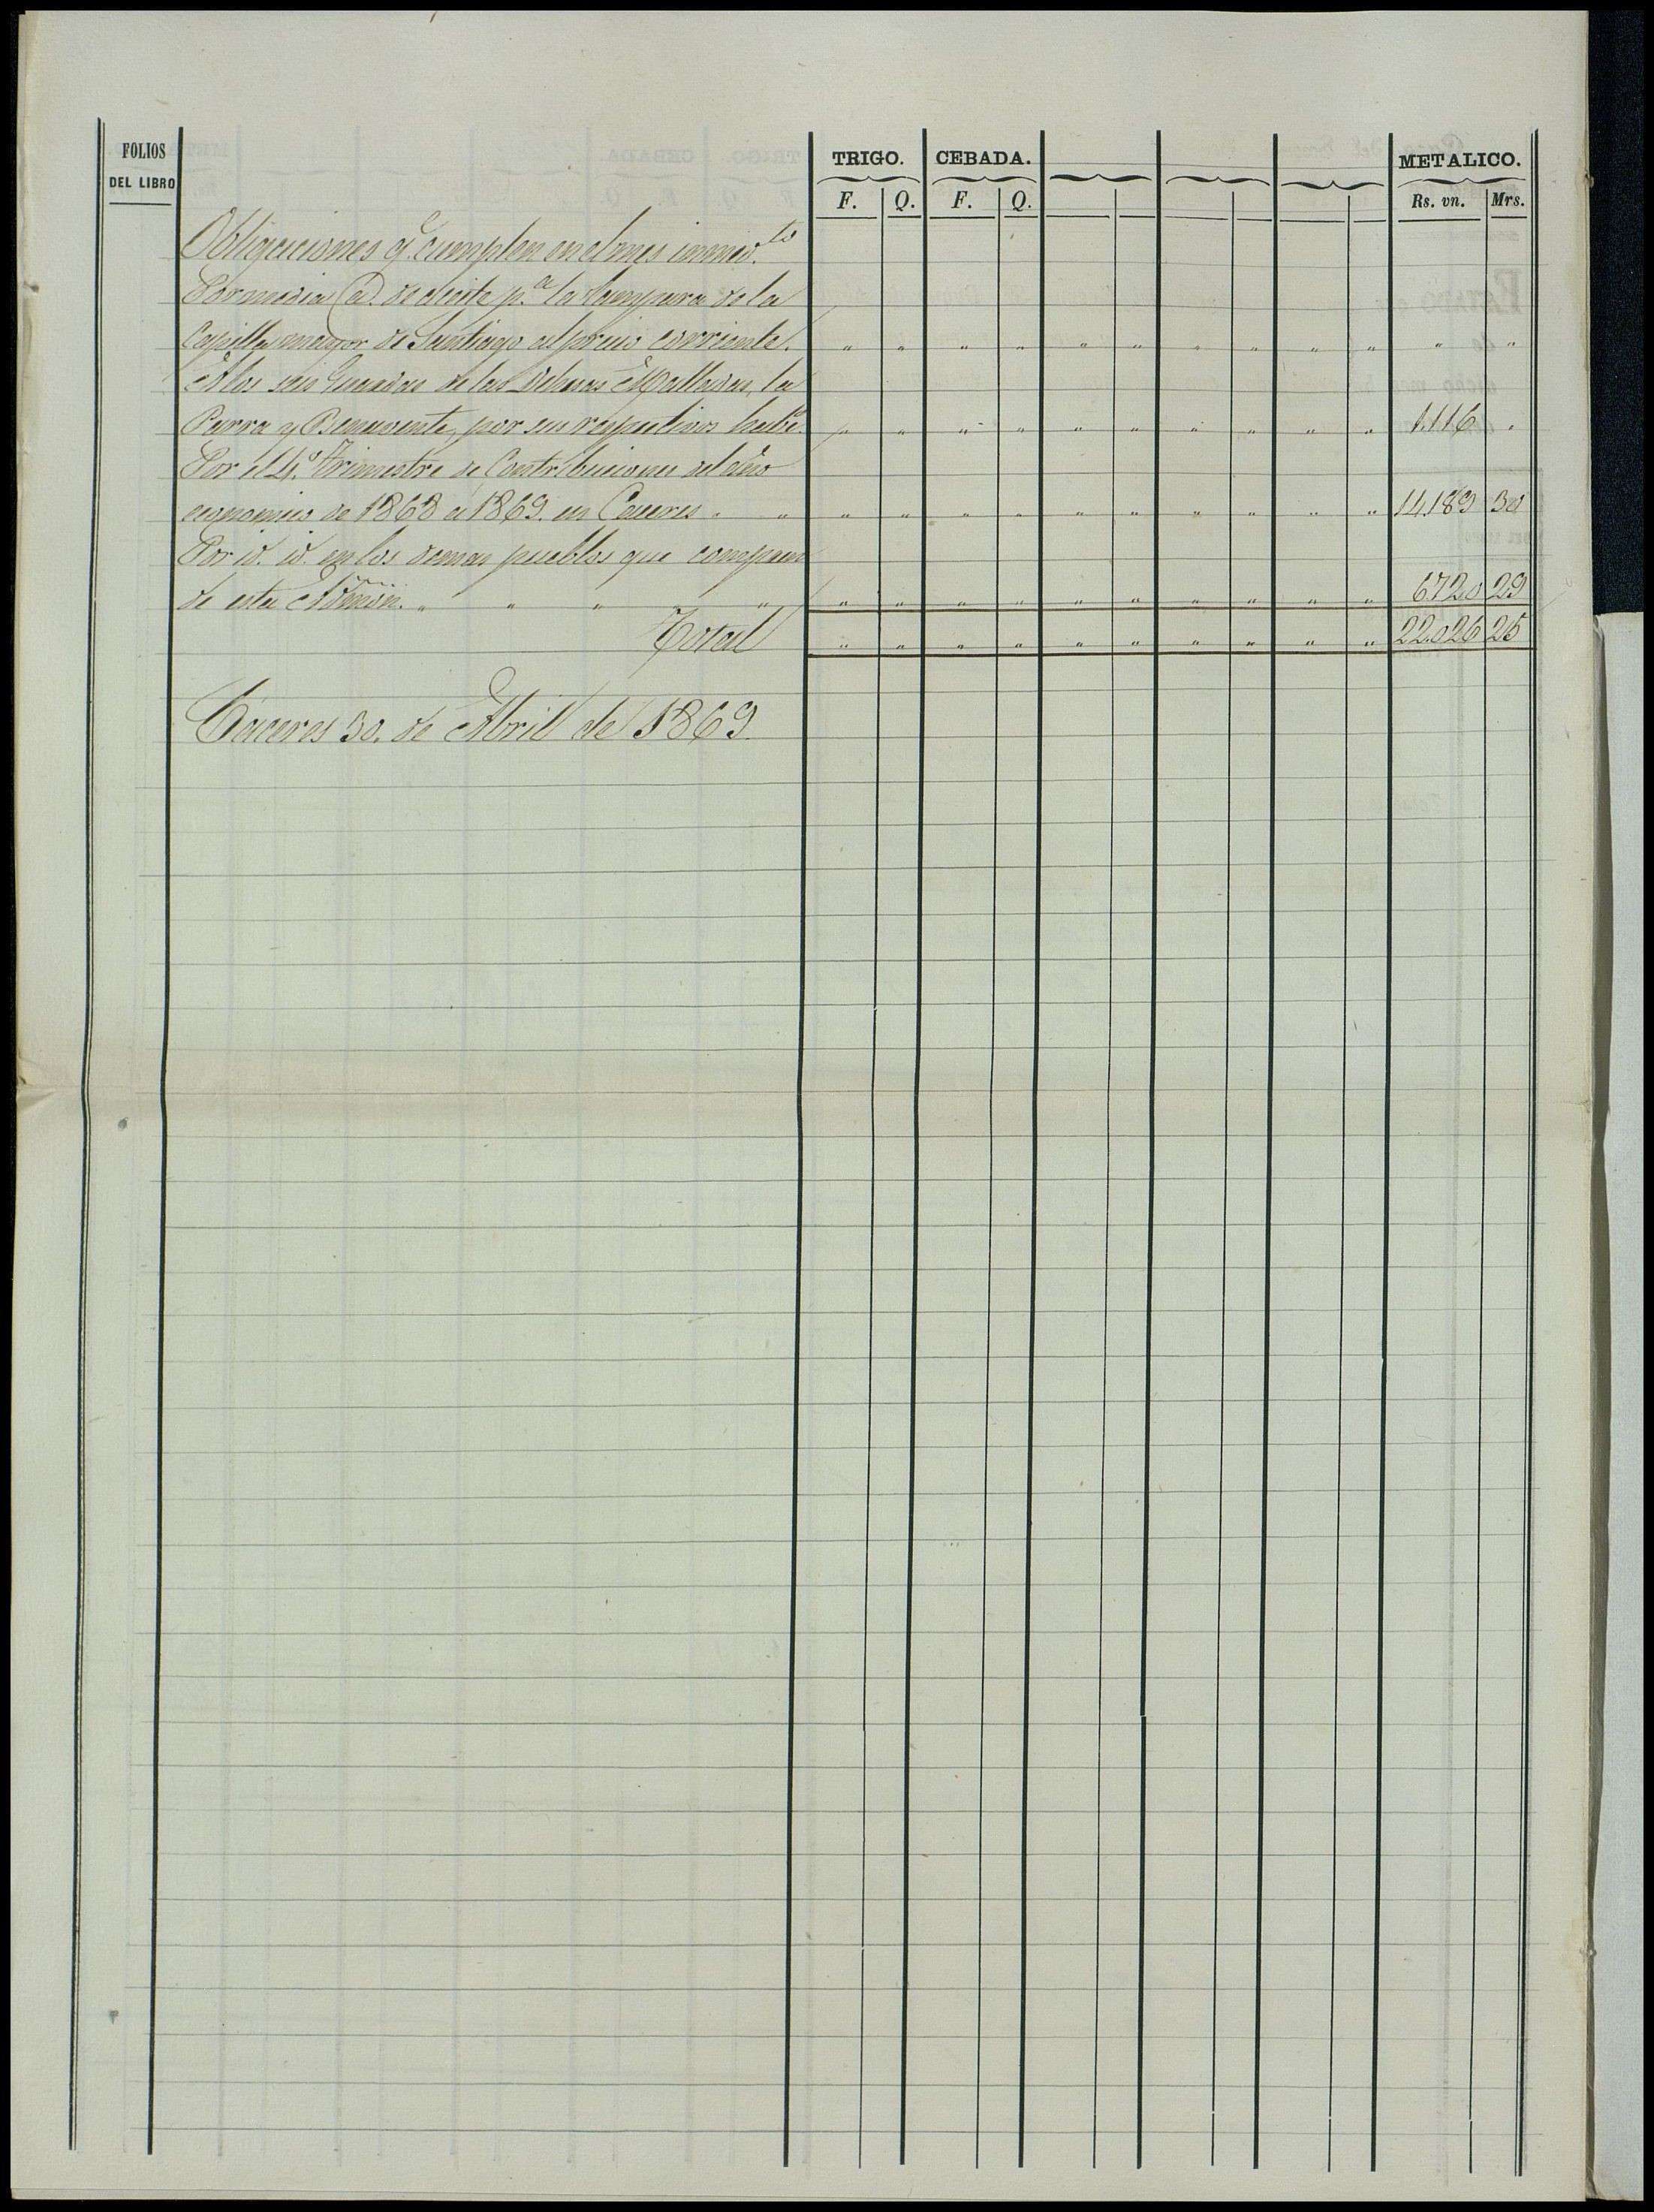 FOLIOS DEL LIBRO
TRIGO. CEBADA. METALICO.
F. Q. F. Q. Rs. vn. Mrs.
Obligaciones q.e cumplen en el mes inmed.to
Por media @ de aceite p.a la lampara de la
Capilla mayor de Santiago al precio corriente. " " " " " " " " " " " "
A los seis Guardas de las Dehesas Malladas, la
Parra y Benavente, por sus respectivos habe.s " " " " " " " " " " 1.116 "
Por el 4.o trimestre de Contribuciones del año
economico de 1868 a 1869. en Caceres " " " " " " " " " " " " 14.189 30
Por id. id. en los demas pueblos que compren
de esta Admon. " " " " " " " " " " " " " " 6.720 29
Total " " " " " " " " " " 22.026 25
Caceres 30. de Abril de 1869.